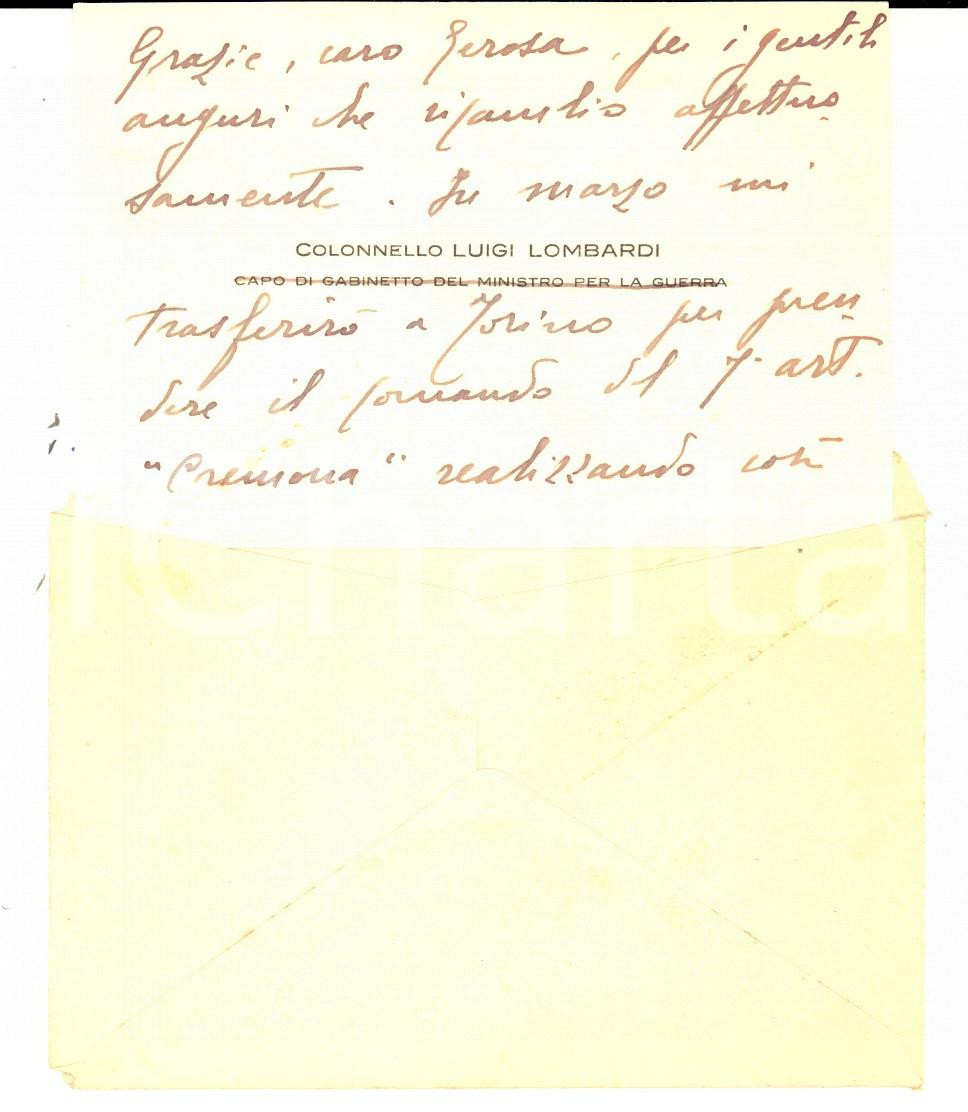 Grazie, caro Gerosa, per i gentili
auguri che ricambio affettuo
samente. In marzo mi
COLONNELLO LUIGI LOMBARDI
CAPO DI GABINETTO DEL MINISTRO PER LA GUERRA
trasferirò a Torino per pren
dere il comando del 7° art.
"Cremona" realizzando così
iCharta